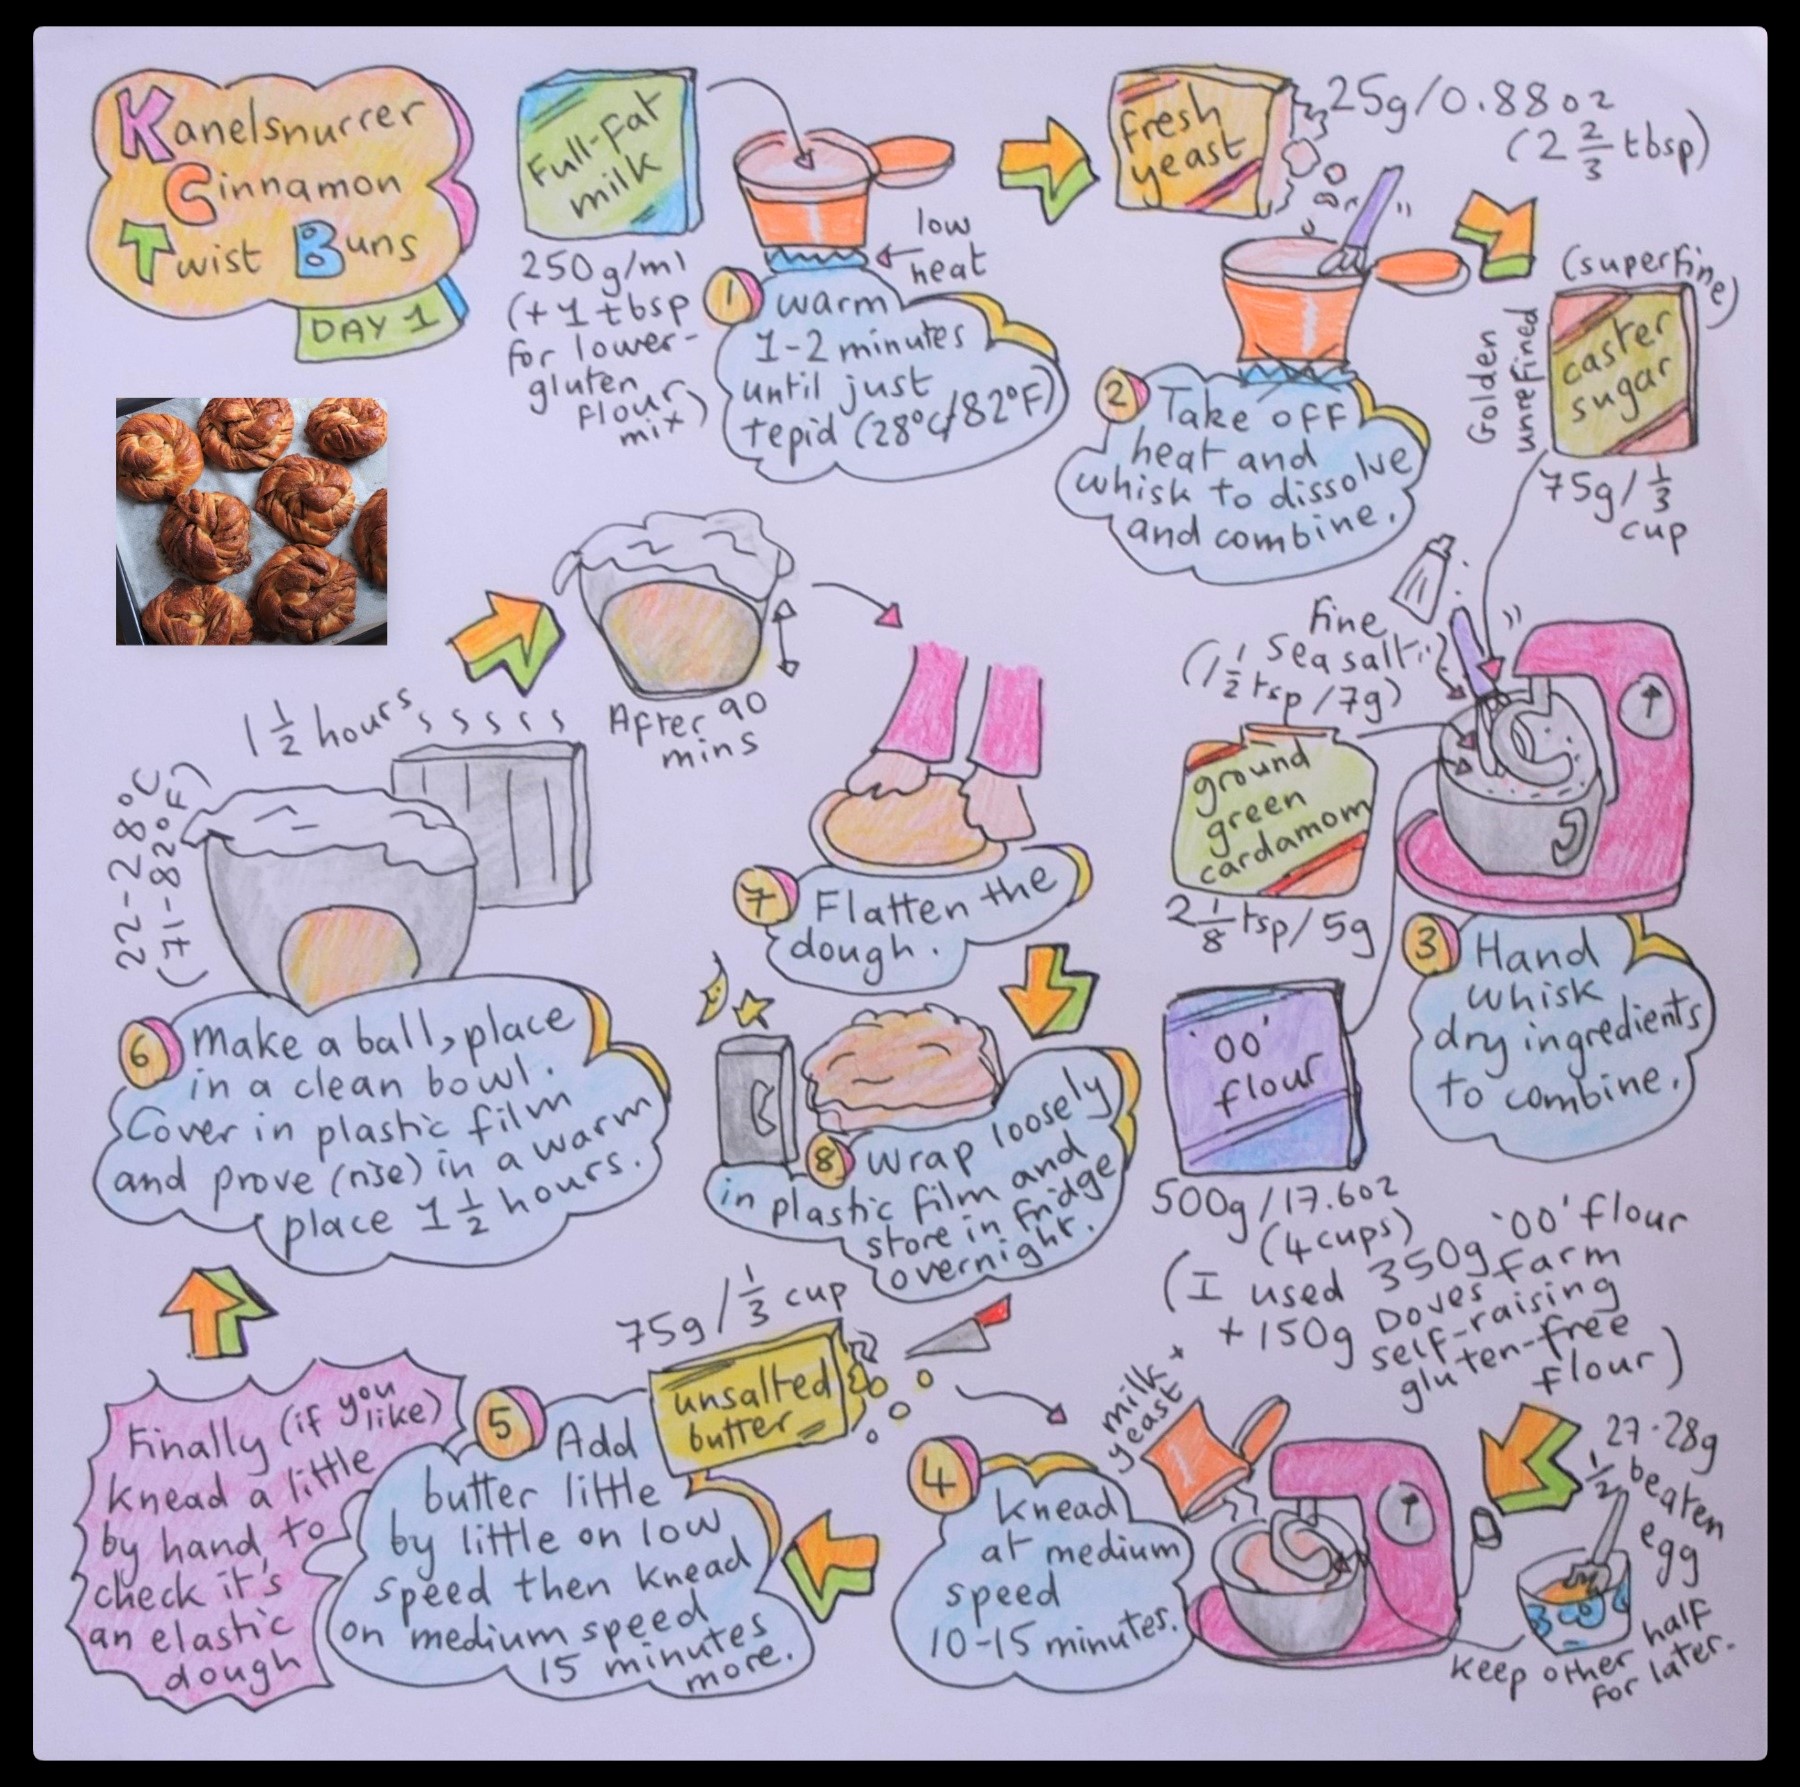 Kanelsnurrer
Cinnamon
Twist Buns
DAY 1
Full-fat
milk
250g/ml
(+1 tbsp
for lower-
gluten
flour
mix)
low
heat
1
warm
1-2 minutes
until just
tepid (28°C/82°F)
fresh
yeast
25g/0.88oz
(2 2/3 tbsp)
2
Take off
heat and
whisk to dissolve
and combine.
(superfine)
Golden
unrefined
caster
sugar
75g/1/3
cup
Fine
sea salt
(1 1/2 tsp/7g)
ground
green
cardamom
2 1/8 tsp/5g
'00'
flour
500g/17.6oz
(4 cups)
(I used 350g '00' flour
+ 150g Doves Farm
self-raising
gluten-free
flour)
3
Hand
whisk
dry ingredients
to combine.
27-28g
1/2 beaten
egg
keep other half
for later.
milk +
yeast
4
knead
at medium
speed
10-15 minutes.
75g/1/3 cup
unsalted
butter
5
Add
butter little
by little on low
speed then knead
on medium speed
15 minutes
more.
Finally (if you
like)
knead a little
by hand, to
check it's
an elastic
dough
6
Make a ball, place
in a clean bowl.
Cover in plastic film
and prove (rise) in a warm
place 1 1/2 hours.
22-28°C
(71-82°F)
1 1/2 hours
After 90
mins
7
Flatten the
dough.
8
Wrap loosely
in plastic film and
store in fridge
overnight.